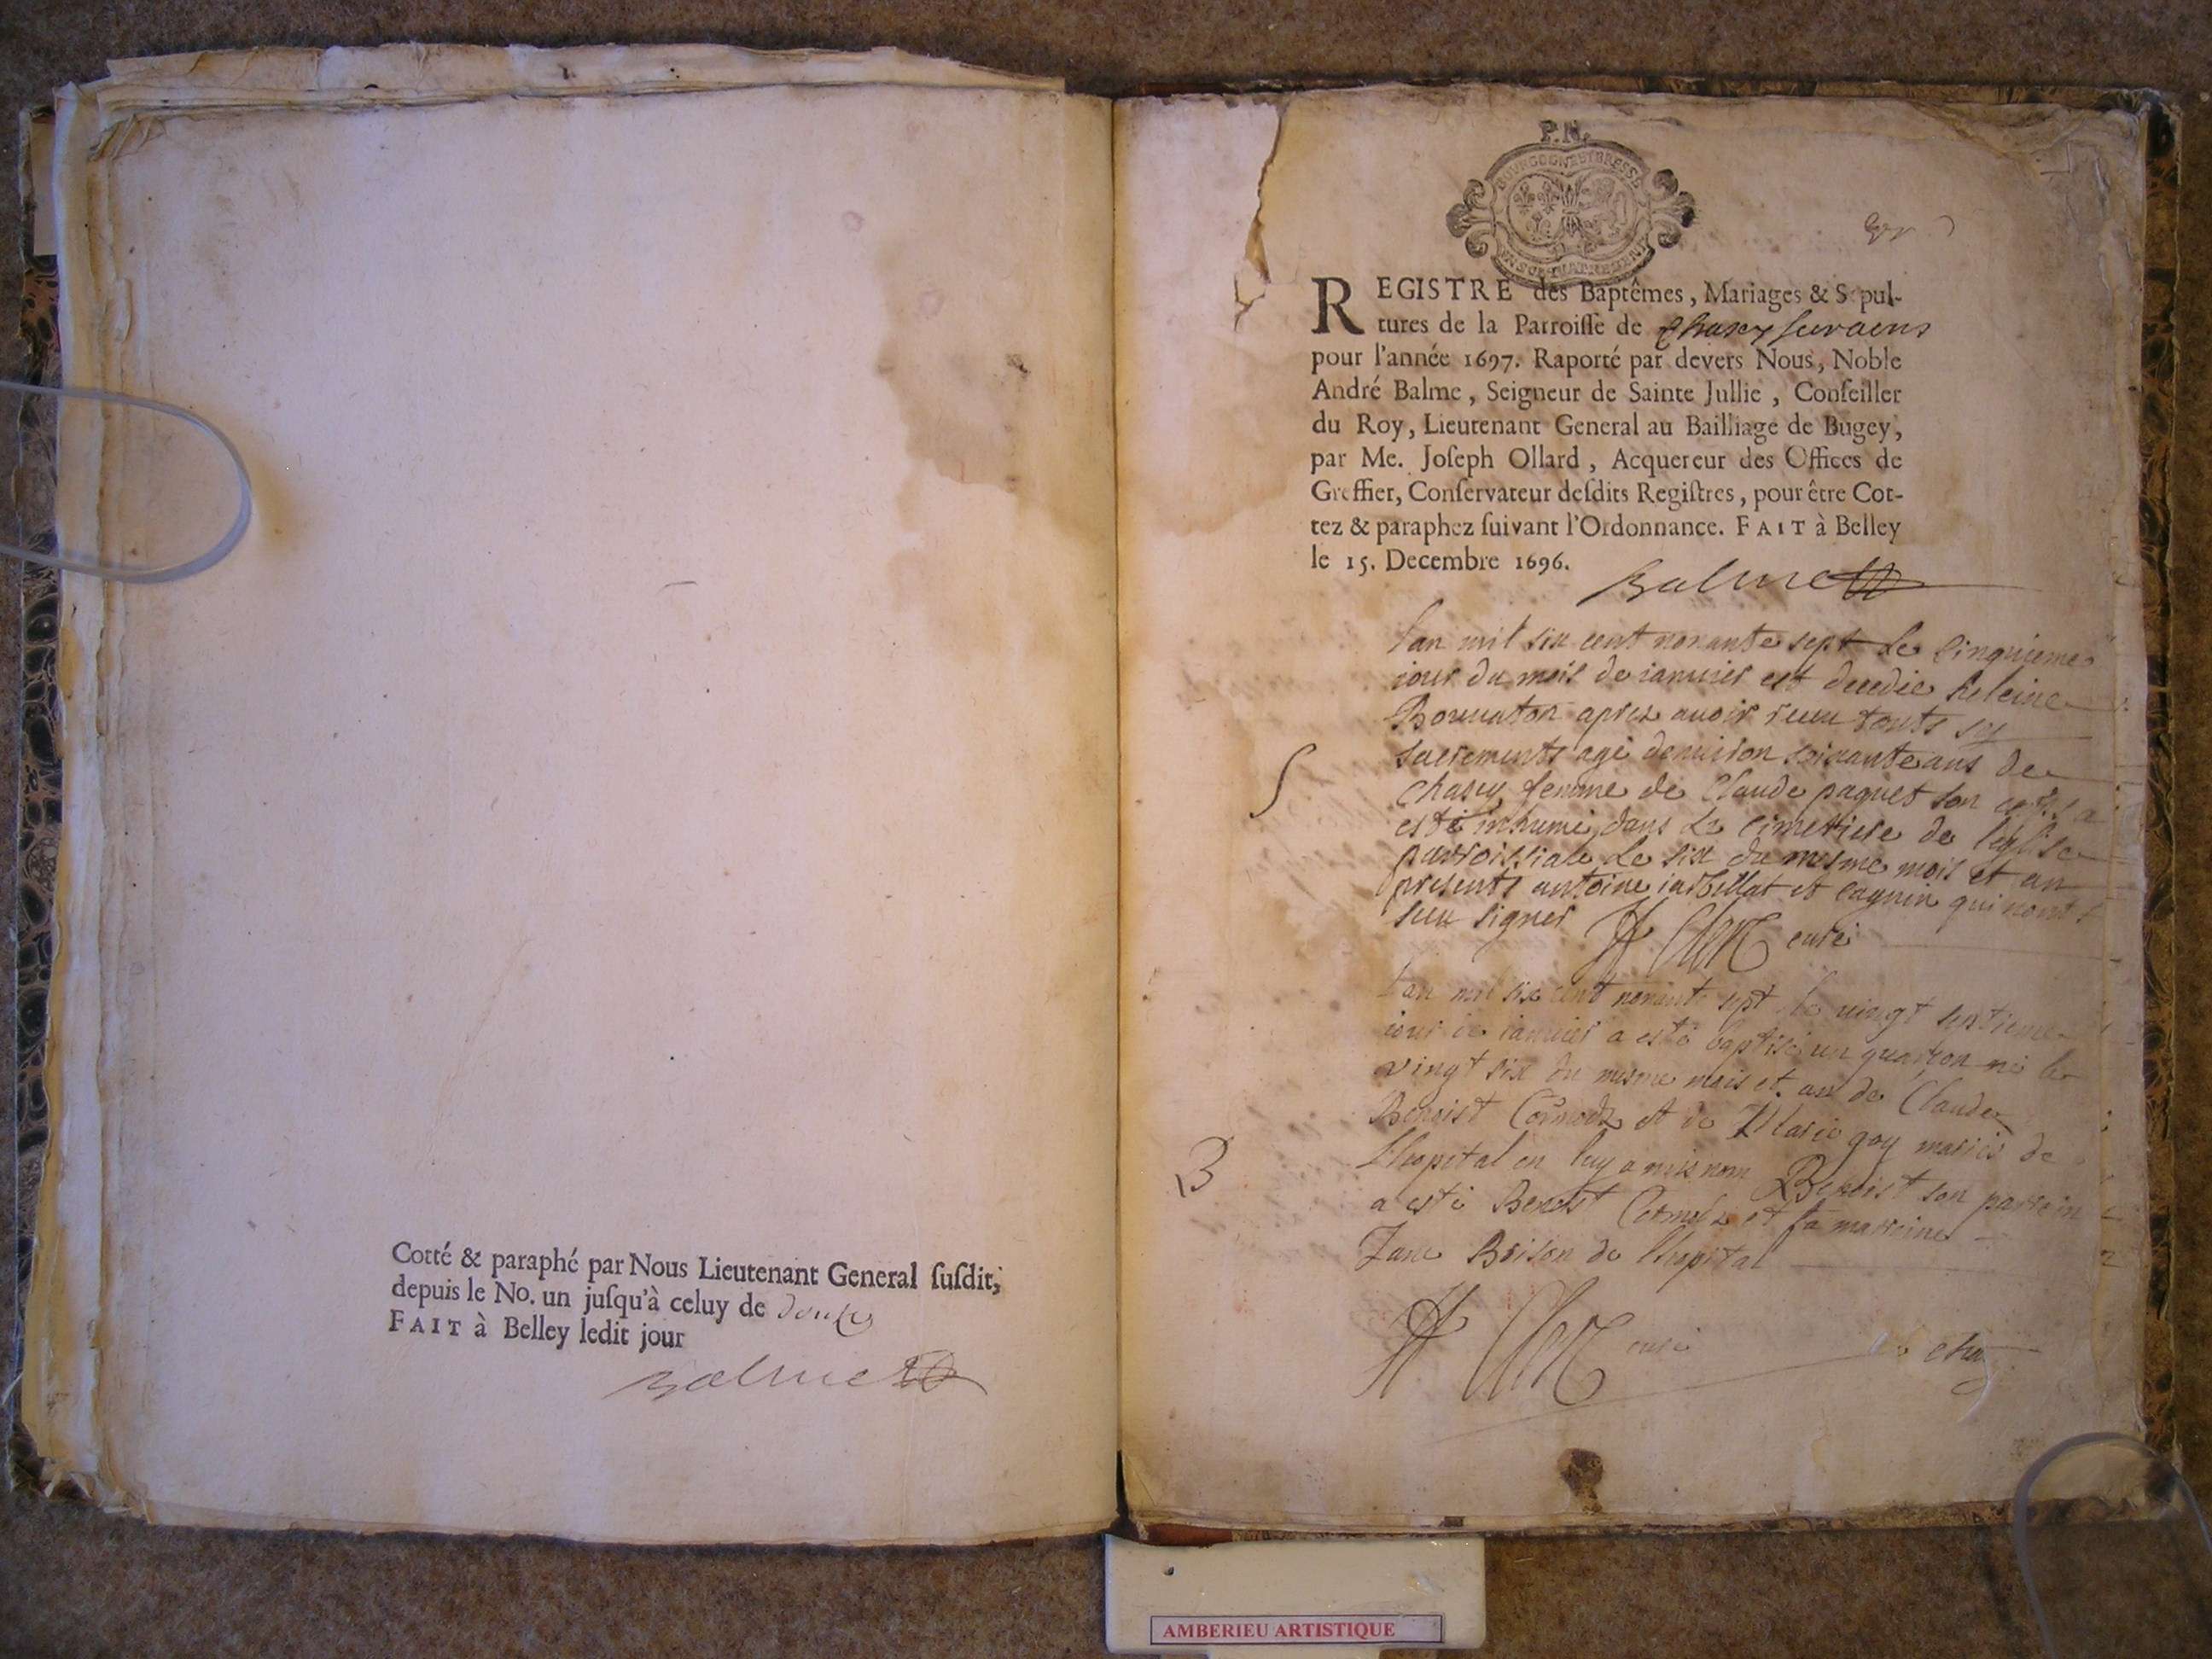 Cotté & paraphé par Nous Lieutenant General ſuſdit,
depuis le No. un juſqu'à celuy de douze
FAIT à Belley ledit jour
Balme
P.N.
BOURGOGNE ET BRESSE
REGISTRE des Baptêmes, Mariages & Sepul-
tures de la Parroiſſe de Chasey sur ains
pour l'année 1697. Raporté par devers Nous, Noble
André Balme, Seigneur de Sainte Jullie, Conſeiller
du Roy, Lieutenant General au Bailliage de Bugey,
par Me. Joſeph Ollard, Acquereur des Offices de
Greffier, Conſervateur deſdits Regiſtres, pour être Cot-
tez & paraphez ſuivant l'Ordonnance. FAIT à Belley
le 15. Decembre 1696.
Balme
S
lan mil six cent nonante sept le cinquieme
iour du mois de ianuier est decedie heleine
apres auoir receu touts
sacrements agé denuiron soixante ans de
Chasey femme de Claude paquet son a
esté inhumé dans le cimetiere de leglise
parroissiale le six du mesme mois et an
presents antoine et cagnin qui nont
sceu signer Clerc curé
B
Lan mil six cent nonante sept le vingt septieme
iour de ianuier a esté baptisé un guarçon né le
vingt six du mesme mois et an de Claude
Benoist et de Marie goy mariés de
Lhopital on luy a mis nom Benoist son parrein
a esté Benoist et sa marreine
Jane Brison de lhopital
Clerc curé
AMBERIEU ARTISTIQUE